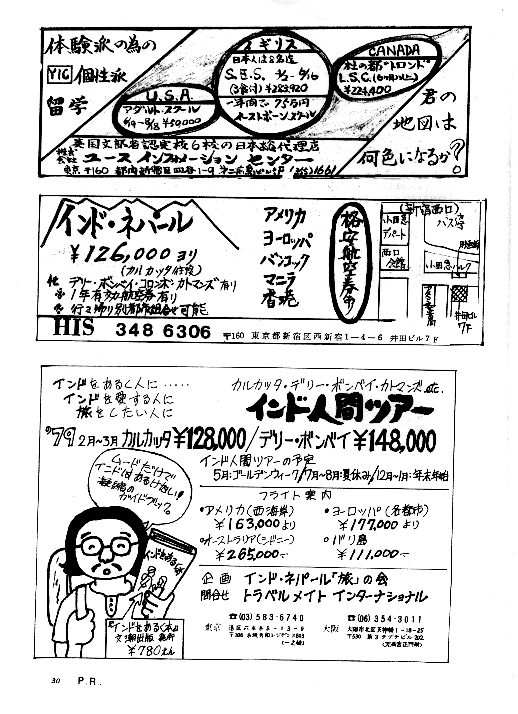 体験派の為の
YIC 個性派
留学
U.S.A.
アダルト・スクール
イギリス
日本人は8名迄
S.E.S.
一年間で 75万円
イーストボーンスクール
CANADA
杜の都"トロント"
L.S.C.
¥224,400
君の
地図は
何色になるか?
英国文部省認定校6校の日本総代理店
株式会社 ユース インフォメーション センター
インド・ネパール
¥126,000より
(カルカッタ往復)
他 デリー・ボンベイ・コロンボ・カトマンズ有り
☆ 1年有効航空券有り
☆ 行き帰り別都市組合せ可能
HIS 348 6306
〒160 東京都新宿区西新宿1-4-6 井田ビル7F
アメリカ
ヨーロッパ
バンコック
マニラ
香港
格安航空券有り
(新宿西口)
小田急デパート
バス停
西口会館
小田急ハルク
井田ビル7F
インドをあるく人に・・・・・
インドを愛する人に
旅をしたい人に
カルカッタ・デリー・ボンベイ・カトマンズ etc.
インド人間ツアー
'79 2月~3月 カルカッタ¥128,000/デリー・ボンベイ¥148,000
インド人間ツアーの予定
5月:ゴールデンウィーク/7月~8月:夏休み/12月~1月:年末年始
フライト案内
・アメリカ(西海岸)
¥163,000より
・ヨーロッパ(各都市)
¥177,000より
・オーストラリア(シドニー)
¥265,000~
・バリ島
¥111,000~
企画 インド・ネパール「旅」の会
問合せ トラベル メイト インターナショナル
東京 ☎(03)583-6740
大阪 ☎(06)354-3011
ムードだけで
インドはあるけない!
インドをあるく本
¥780
30 P.R.